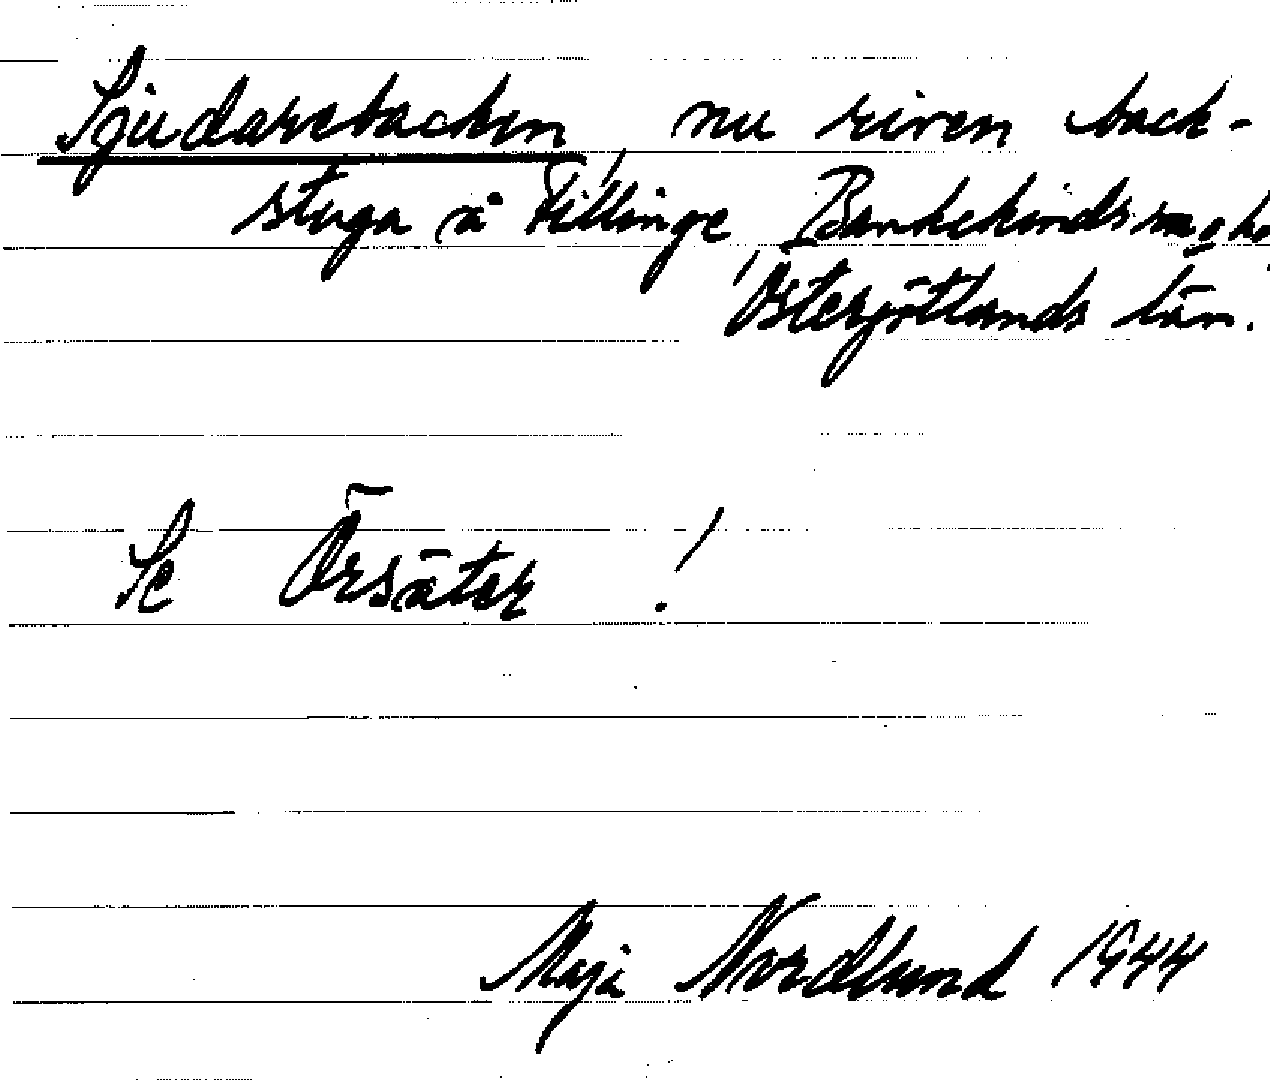 Sjudarebacken, nu riven back-
stuga å Fillinge, Bankekinds sn o hd
Östergötlands län.
Se Örsäter !
Maja Nordlund 1944